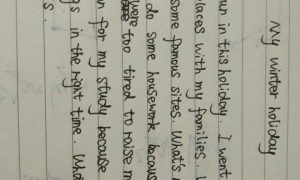 My winter holiday
un in this holiday. I went
laces with my families.
some famous sites. What's
do some housework because
were too tired to raise m
n for my study because
gs in the right time. Wha
s.